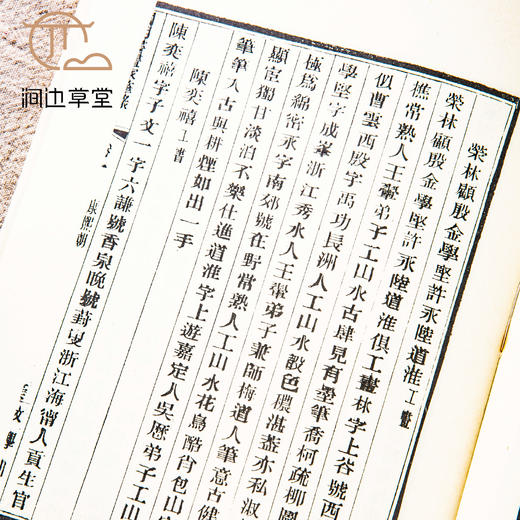 涧边草堂
榮林顧殷金學堅許永陞道淮工畫
榮林顧殷金學堅許永陞道淮俱工畫林字上谷號西
樵常熟人王翬弟子工山水古肆見有墨筆喬柯疏柳圖
似曹雲西殷字禹功長洲人工山水設色穠湛蓋亦私淑
學堅字成峯浙江秀水人王翬弟子兼師梅道人筆意古健
極爲綿密永字南郊號在野常熟人工山水花鳥酷肖包山
顯宦獨甘淡泊不樂仕進道淮字上遊嘉定人吳歷弟子工山
筆筆入古與耕煙如出一手
陳奕禧工書
陳奕禧字子文一字六謙號香泉晚號葑叟浙江海甯人貢生官
康熙朝
文學山